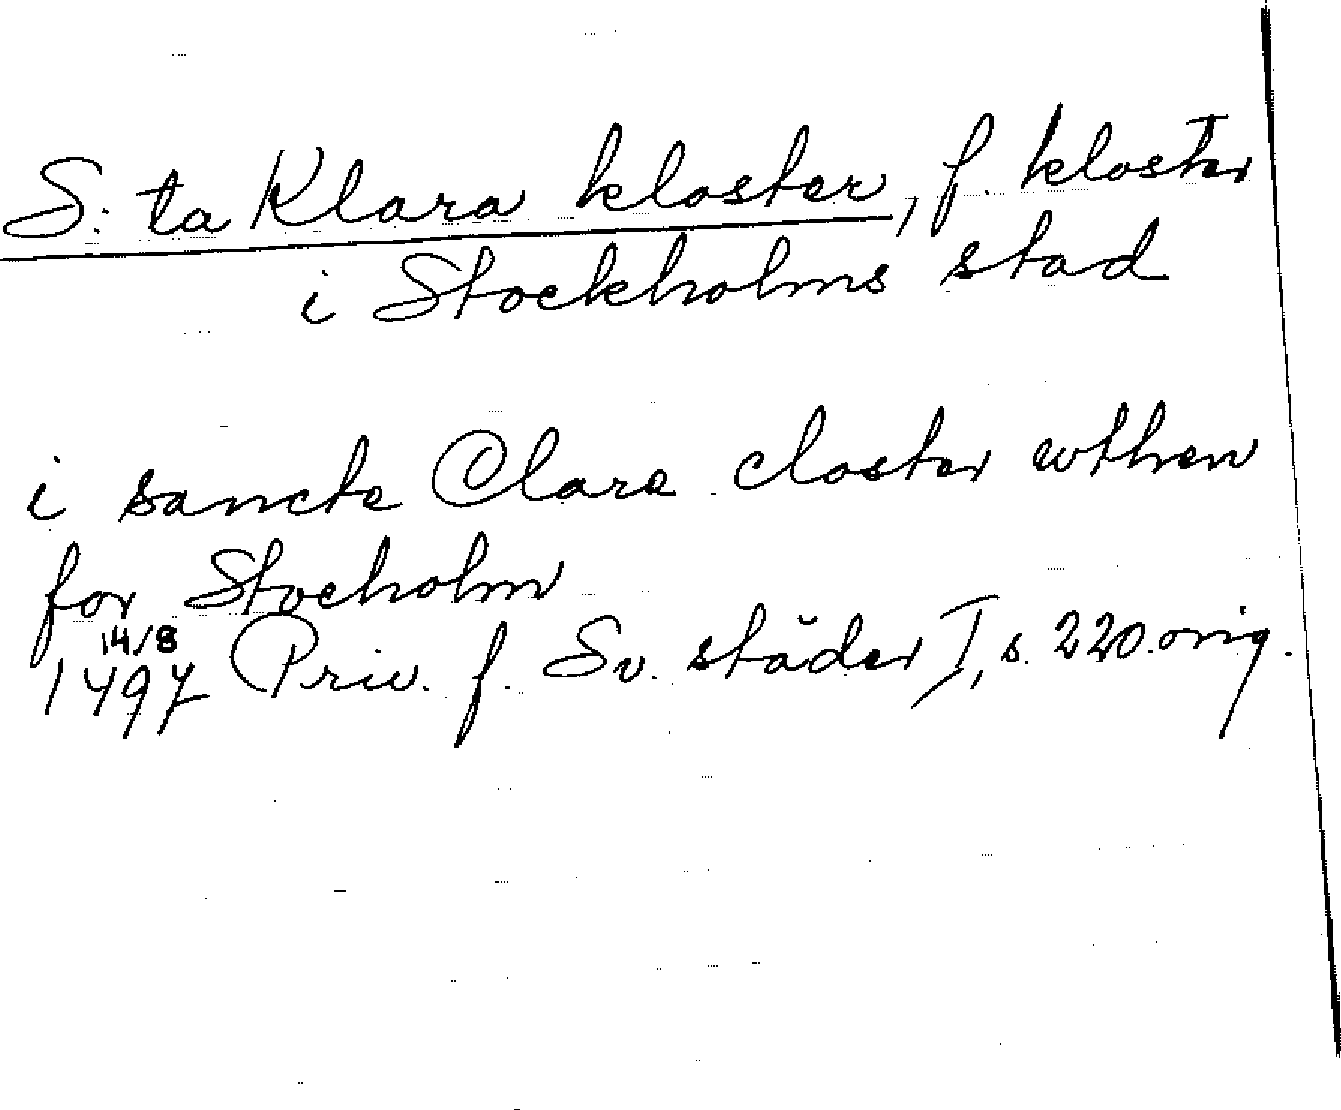 S:ta Klara kloster, f. kloster
i Stockholms stad
i sancte Clare closter wthen
for Stocholm
14/8
1497 Priv. f. Sv. städer I, s. 220. orig.